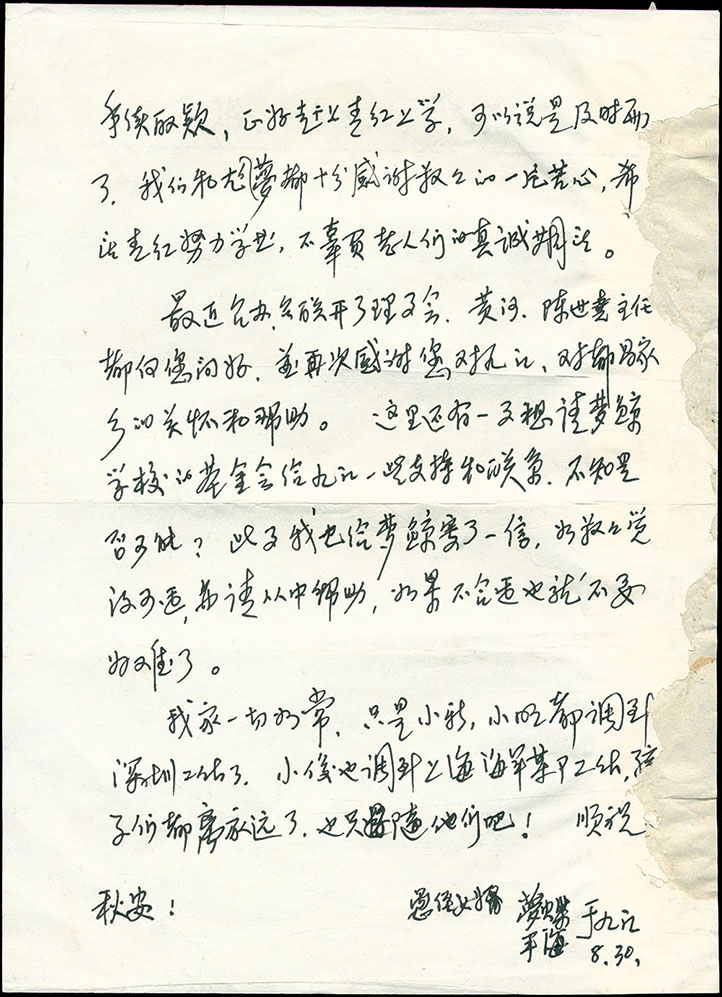 手续取款，正好赶上青红上学，可以说是及时雨
了。我们和尤梦都十分感谢叔公的一片苦心，希
望青红努力学业，不辜负老人们的真诚期望。
最近台办、台联开了理事会，黄河、陈世尧主任
都向您问好，并再次感谢您对九江、对都昌家
乡的关怀和帮助。 这里还有一事想请梦鲸
学校的基金会给九江一些支持和联系，不知是
否可能？此事我也给梦鲸寄了一信，如叔公觉
得可适，亦请从中帮助，如果不合适也就不要
为难了。
我家一切如常，只是小新，小旺都调到
深圳工作了，小俊也调到上海海军某部工作，孩
子们都离家远了，也只好随他们吧！ 顺祝
秋安！
愚侄女婿 梦蝶 平海 于九江
8.30.